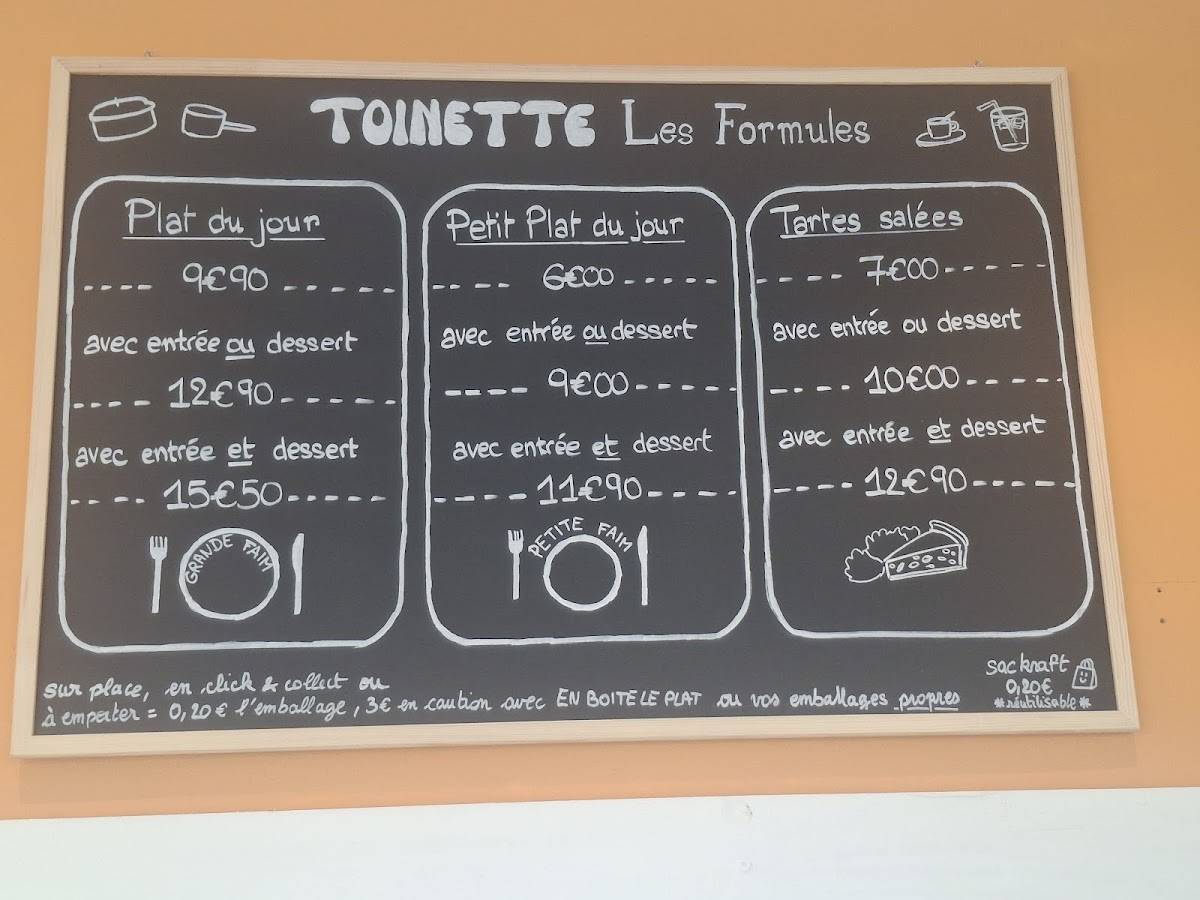 TOINETTE Les Formules
Plat du jour
9€90
avec entrée ou dessert
12€90
avec entrée et dessert
15€50
GRANDE FAIM
Petit Plat du jour
6€00
avec entrée ou dessert
9€00
avec entrée et dessert
11€90
PETITE FAIM
Tartes salées
7€00
avec entrée ou dessert
10€00
avec entrée et dessert
12€90
sur place, en click & collect ou
à emporter = 0,20€ l'emballage, 3€ en caution avec EN BOITE LE PLAT ou vos emballages propres
sac kraft
0,20€
*réutilisable*